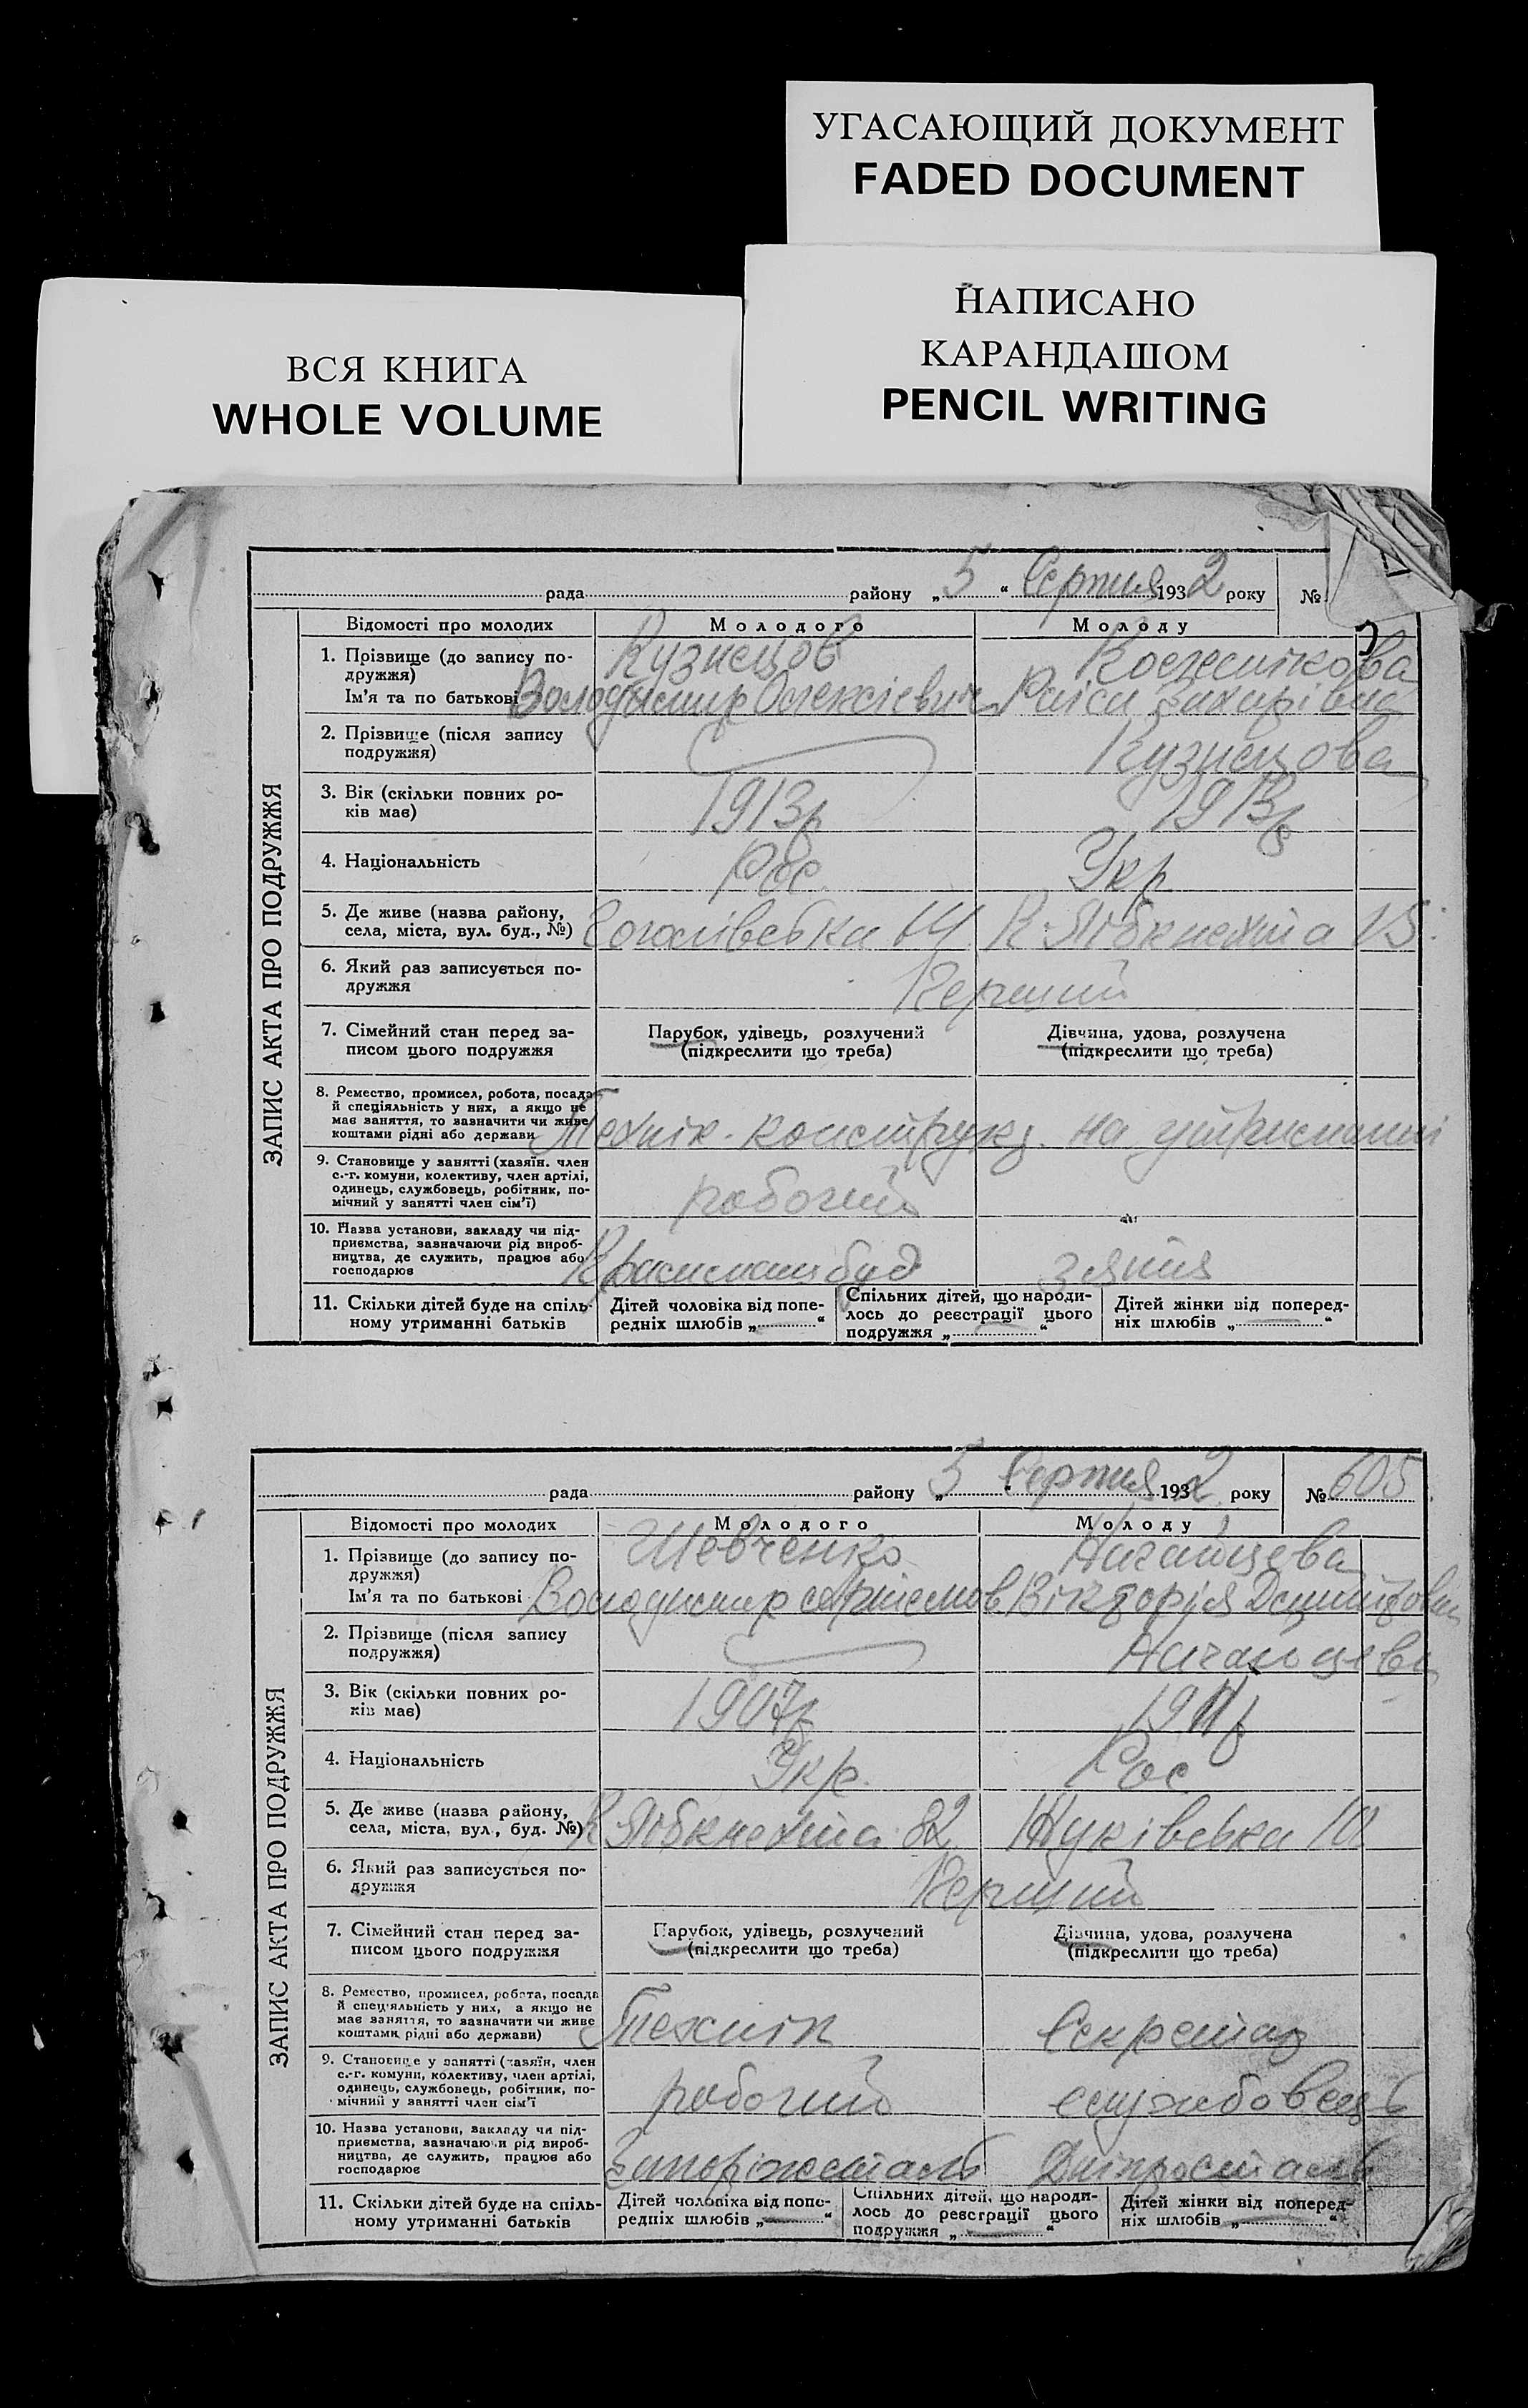 УГАСАЮЩИЙ ДОКУМЕНТ
FADED DOCUMENT
НАПИСАНО
КАРАНДАШОМ
PENCIL WRITING
ВСЯ КНИГА
WHOLE VOLUME
ЗАПИС АКТА ПРО ПОДРУЖЖЯ
рада району „5“ Серпня 1932 року №
Відомості про молодих Молодого Молоду
1. Прізвище (до запису по- Кузнецов
дружжя)
Ім'я та по батькові Володимир Олексієвич Раіса Захарівна
2. Прізвище (після запису Кузнецова
подружжя)
3. Вік (скільки повних ро- 1913р 1913р
ків має)
4. Національність Рос. Укр
5. Де живе (назва району,
села, міста, вул. буд., №) Гоголівська 14 К. Лібкнехта 15
6. Який раз записується по- Перший
дружжя
7. Сімейний стан перед за- Парубок, удівець, розлучений Дівчина, удова, розлучена
писом цього подружжя (підкреслити що треба) (підкреслити що треба)
8. Ремество, промисел, робота, посада
й спеціяльність у них, а якщо не
має заняття, то зазначити чи живе
коштами рідні або держави Технік-конструкт. на утриманні
9. Становище у занятті (хазяїн. член
с.-г. комуни, колективу, член артілі,
одинець, службовець, робітник, по- робочий
мічний у занятті член сім'ї)
10. Назва установи, закладу чи під-
приємства, зазначаючи рід вироб-
ництва, де служить, працює або зятя
господарює
11. Скільки дітей буде на спіль- Дітей чоловіка від попе- Спільних дітей, що народи- Дітей жінки від поперед-
ному утриманні батьків редніх шлюбів „—“ лось до реєстрації цього ніх шлюбів „—“
подружжя „—“
ЗАПИС АКТА ПРО ПОДРУЖЖЯ
рада району „5“ Серпня 1932 року № 605
Відомості про молодих Молодого Молоду
1. Прізвище (до запису по- Шевченко
дружжя)
Ім'я та по батькові Володимир Артемов Вікторія
2. Прізвище (після запису
подружжя)
3. Вік (скільки повних ро- 1907р 1911р
ків має)
4. Національність Укр. Рос
5. Де живе (назва району,
села, міста, вул., буд. №) К Лібкнехта 82 Жуківська
6. Який раз записується по- Перший
дружжя
7. Сімейний стан перед за- Парубок, удівець, розлучений Дівчина, удова, розлучена
писом цього подружжя (підкреслити що треба) (підкреслити що треба)
8. Ремество, промисел, робота, посада
й спец'яльність у них, а якщо не
має заняття, то зазначити чи живе
коштами рідні або держави) Технік Секретар
9. Становище у занятті (хазяїн, член
с.-г. комуни, колективу, член артілі,
одинець, службовець, робітник, по- робочий службовець
мічний у занятті член сім'ї
10. Назва установи, закладу чи під-
приємства, зазначаючи рід вироб-
ництва, де служить, працює або Запоріжсталь Дніпросталь
господарює
11. Скільки дітей буде на спіль- Дітей чоловіка від попе- Спільних дітей, що народи- Дітей жінки від поперед-
ному утриманні батьків редніх шлюбів „—“ лось до реєстрації цього ніх шлюбів „—“
подружжя „—“